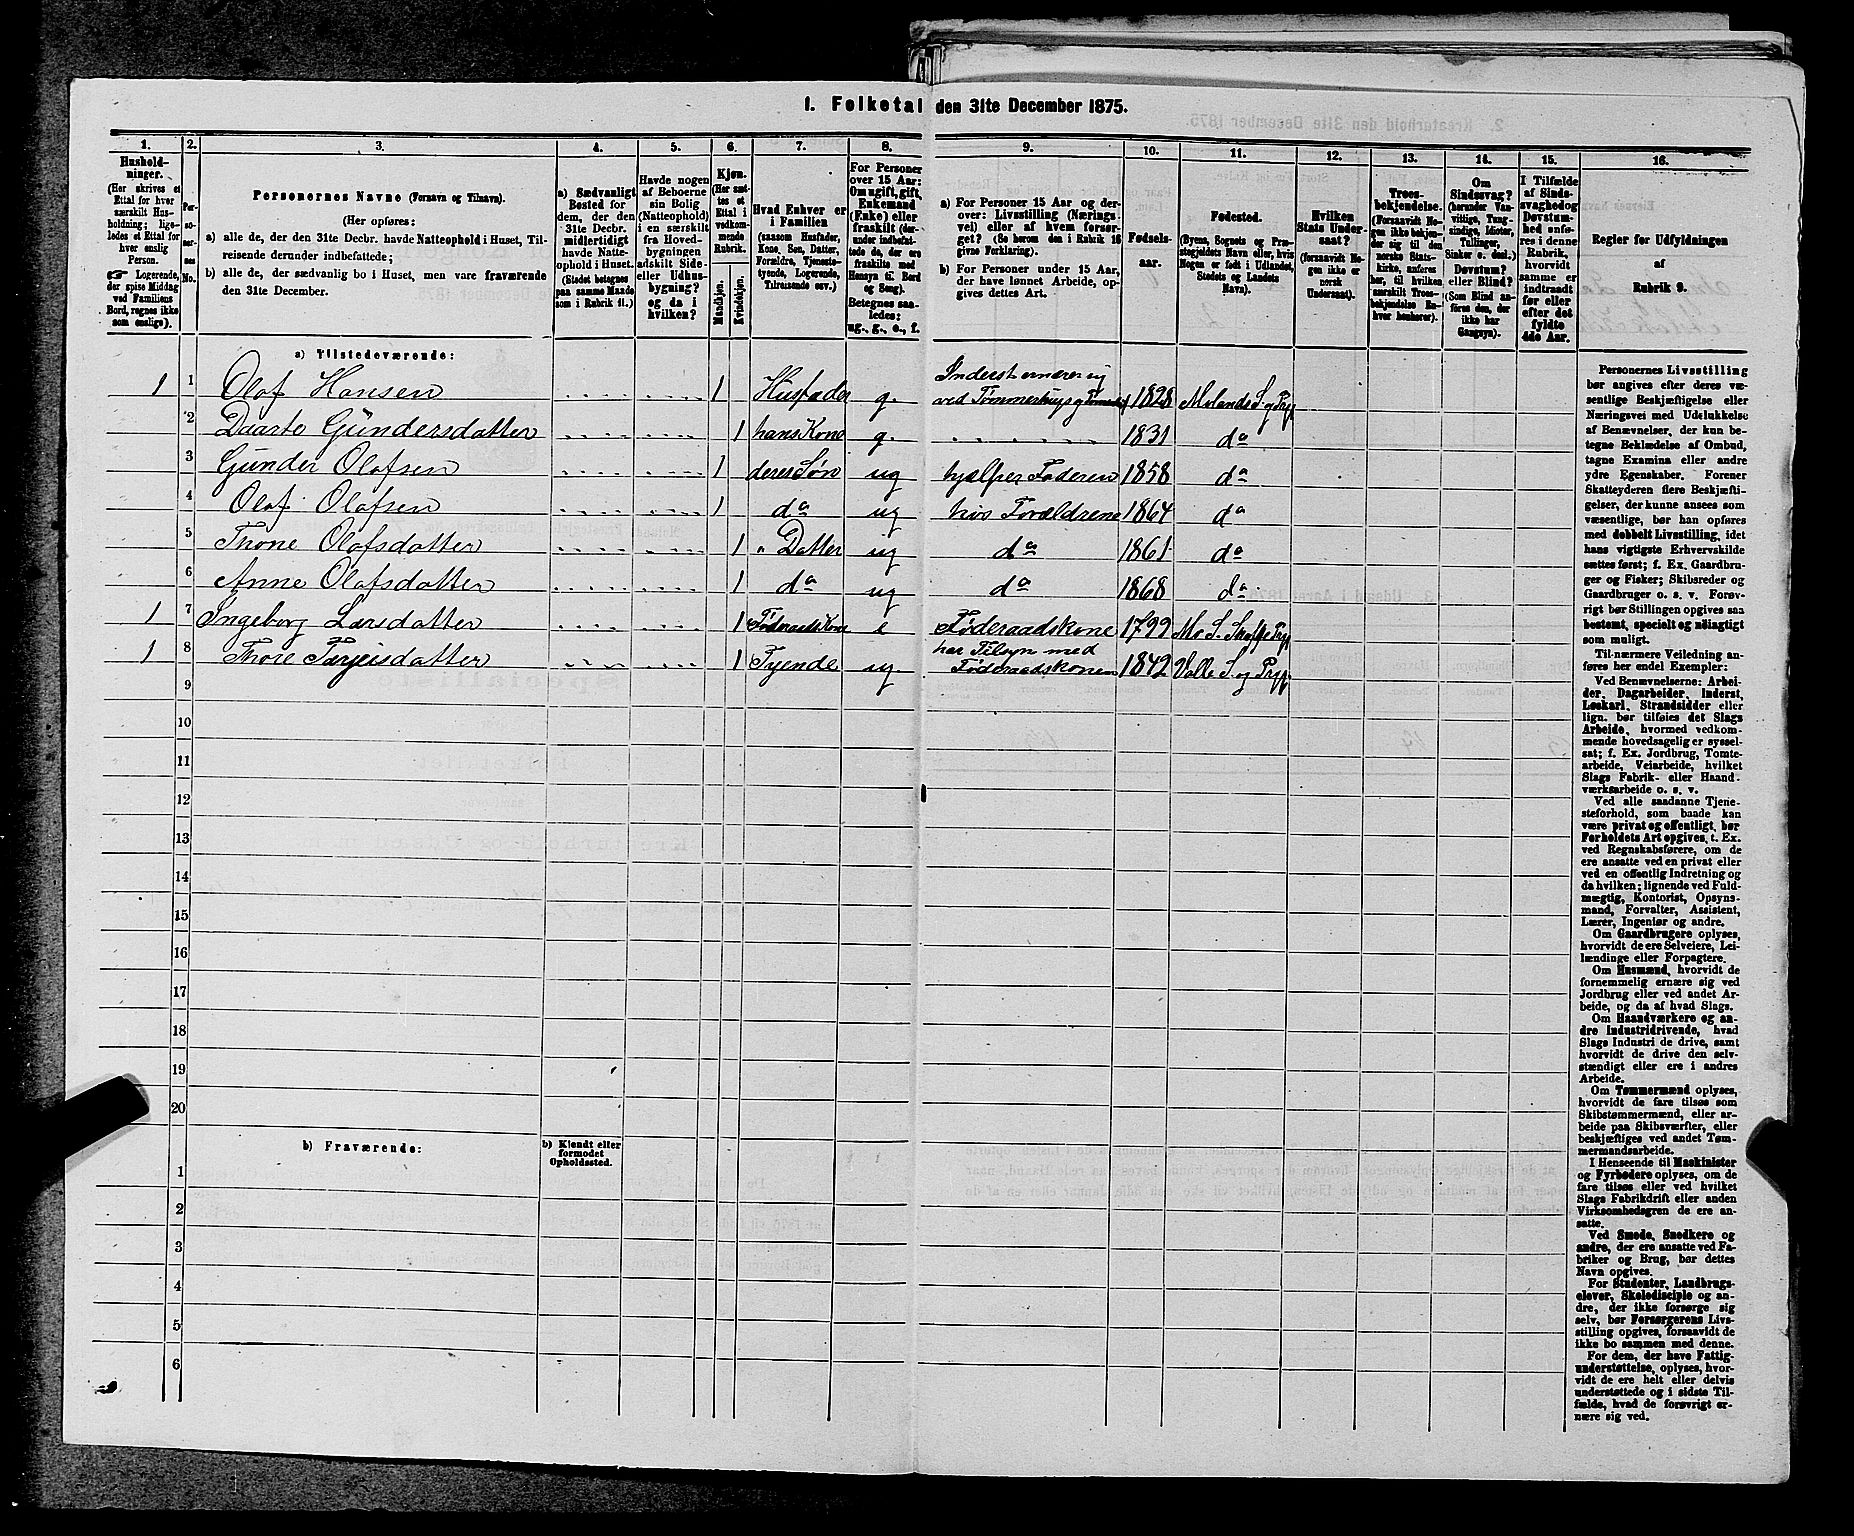 1. Folketal den 31te December 1875.
1.
2.
3.
4.
5.
6.
7.
8.
9.
10.
11.
12.
13.
14.
15.
16.
Hushold-
ninger.
(Her skrives et
Ettal for hver
særskilt Hus-
holdning; lige-
ledes et Ettal for
hver enslig
Person.
☞ Logerende,
der spise Middag
ved Familiens
Bord, regnes ikke
som enslige).
Per-
so-
ner-
nes
No.
Personernes Navne (Fornavn og Tilnavn).
(Her opføres:
a) alle de, der den 31te Decbr. havde Natteophold i Huset, Til-
reisende derunder indbefattede;
b) alle de, der sædvanlig bo i Huset, men vare fraværende
den 31te December.
a) Sædvanligt
Bosted for
dem, der den
31te Decbr.
midlertidigt
havde Natte-
ophold i Huset.
(Stedet betegnes
paa samme Maade
som i Rubrik 11.)
Havde nogen
af Beboerne
sin Bolig
(Natteophold)
i en særskilt
fra Hoved-
bygningen
adskilt Side-
eller Udhus-
bygning?
og da i
hvilken?
Kjøn.
(Her sæt-
tes et
Ettal i
vedkom-
mende
Rubrik.
Mandkjøn.
Kvindekjøn.
Hvad Enhver er
i Familien
(saasom Husfader,
Kone, Søn, Datter,
Forældre, Tjeneste-
tyende, Logerende,
Tilreisende osv.)
For Personer
over 15 Aar:
Om ugift, gift,
Enkemand
(Enke) eller
fraskilt (der-
under indbefat-
tede de, der ere
fraskilte med
Hensyn til Bord
og Seng).
Betegnes saa-
ledes:
ug., g., e., f.
a) For Personer 15 Aar og der-
over: Livsstilling (Nærings-
vei) eller af hvem forsør-
get? (Se herom den i Rubrik 16
givne Forklaring).
b) For Personer under 15 Aar,
der have lønnet Arbeide, op-
gives dettes Art.
Fødsels-
aar.
Fødested.
(Byens, Sognets og Præ-
stegjeldets Navn eller, hvis
Nogen er født i Udlandet,
Stedets og Landets
Navn).
Hvilken
Stats Under-
saat?
(forsaavidt No-
gen ikke er
norsk
Undersaat).
Troes-
bekjendelse.
(Forsaavidt No-
gen ikke bekjen-
der sig til den
norske Stats-
kirke, anføres
her, til hvilken
særskilt Troes-
bekjendelse En-
hver henhører).
Om
Sindssvag?
(herunder Van-
vittige, Tung-
sindige, Idioter,
Tullinger,
Sinker o. desl.)
Døvstum?
eller Blind?
(Som Blind an-
føres den, der
ikke har
Gangsyn).
I Tilfælde
af Sinds-
svaghed og
Døvstum-
hed anfø-
res i denne
Rubrik,
hvorvidt
samme er
indtraadt
før eller
efter det
fyldte
4de Aar.
Regler for Udfyldningen
af
Rubrik 9.
a) Tilstedeværende:
1 1 Olaf Hansen 1 Husfader g. Inderst ernærer sig ved 1828 Molands S. og
2 Daarte Gündersdatter 1 hans Kone g. 1831 do
3 Günder Olafsen 1 deres Søn ug hjælper Faderen 1858 do
4 Olaf Olafsen 1 do ug hos Forældrene 1864 do
5 Thone Olafsdatter 1 " Datter ug do 1861 do
6 Anne Olafsdatter 1 do ug do 1868 do
1 7 Ingeborg Larsdatter 1 Føderaadskone e Føderaadskone 1799 Mo S.
1 8 Thore Tarjeisdatter 1 Tyende ug. har Tilsyn med Føderaadskonen 1842 Valle S. og
9
10
11
12
13
14
15
16
17
18
19
20
b) Fraværende:
b) Kjendt eller
formodet
Opholdssted.
1
2
3
4
5
6
Personernes Livsstilling
bør angives efter deres væ-
sentlige Beskjæftigelse eller
Næringsvei med Udelukkelse
af Benævnelser, der kun be-
tegne Beklædelse af Ombud,
tagne Examina eller andre
ydre Egenskaber. Forener
Skatteyderen flere Beskjæfti-
gelser, der kunne ansees som
væsentlige, bør han opføres
med dobbelt Livsstilling, idet
hans vigtigste Erhvervskilde
sættes først; f. Ex. Gaardbru-
ger og Fisker; Skibsreder og
Gaardbruger o. s. v. Forøv-
rigt bør Stillingen opgives saa
bestemt, specielt og nøiagtigt
som muligt.
Til nærmere Veiledning an-
føres her endel Exempler:
Ved Benævnelserne: Arbei-
der, Dagarbeider, Inderst,
Løskarl, Strandsidder eller
lign. bør tilføies det Slags
Arbeide, hvormed vedkom-
mende hovedsagelig er syssel-
sat; f. Ex. Jordbrug, Tomte-
arbeide, Veiarbeide, hvilket
Slags Fabrik- eller Haand-
værksarbeide o. s. v.
Ved alle saadanne Tjene-
steforhold, som baade kan
være privat og offentligt, bør
Forholdets Art opgives, t. Ex.
ved Regnskabsførere, om de
ere ansatte ved en privat eller
ved en offentlig Indretning og
da hvilken; lignende ved Fuld-
mægtig, Kontorist, Opsyns-
mand, Forvalter, Assistent,
Lærer, Ingeniør og andre.
Om Gaardbrugere oplyses,
hvorvidt de ere Selveiere, Lei-
lændinge eller Forpagtere.
Om Husmænd, hvorvidt de
fornemmelig ernære sig ved
Jordbrug eller ved andet Ar-
beide, og da af hvad Slags.
Om Haandværkere og an-
dre Industridrivende, hvad
Slags Industri de drive, samt
hvorvidt de drive den selv-
stændigt eller ere i andres
Arbeide.
Om Tømmermænd oplyses,
hvorvidt de fare tilsøs som
Skibstømmermænd, eller ar-
beide paa Skibsværfter, eller
beskjæftiges ved andet Tøm-
mermandsarbeide.
I Henseende til Maskinister
og Fyrbødere oplyses, om de
fare tilsøs eller ved hvilket
Slags Fabrikdrift eller anden
Virksomhedsgren de ere an-
satte.
Ved Smede, Snedkere og
andre, der ere ansatte ved Fa-
briker og Brug, bør dettes
Navn opgives.
For Studenter, Landbrugs-
elever, Skoledisciple og an-
dre, der ikke forsørge sig
selv, bør Forsørgerens Livs-
stilling opgives, forsaavidt de
ikke bo sammen med denne.
For dem, der have Fattig-
understøttelse, oplyses, hvor-
vidt de ere helt eller delvis
understøttede og i sidste Til-
fælde, hvad de forøvrigt er-
nære sig ved.